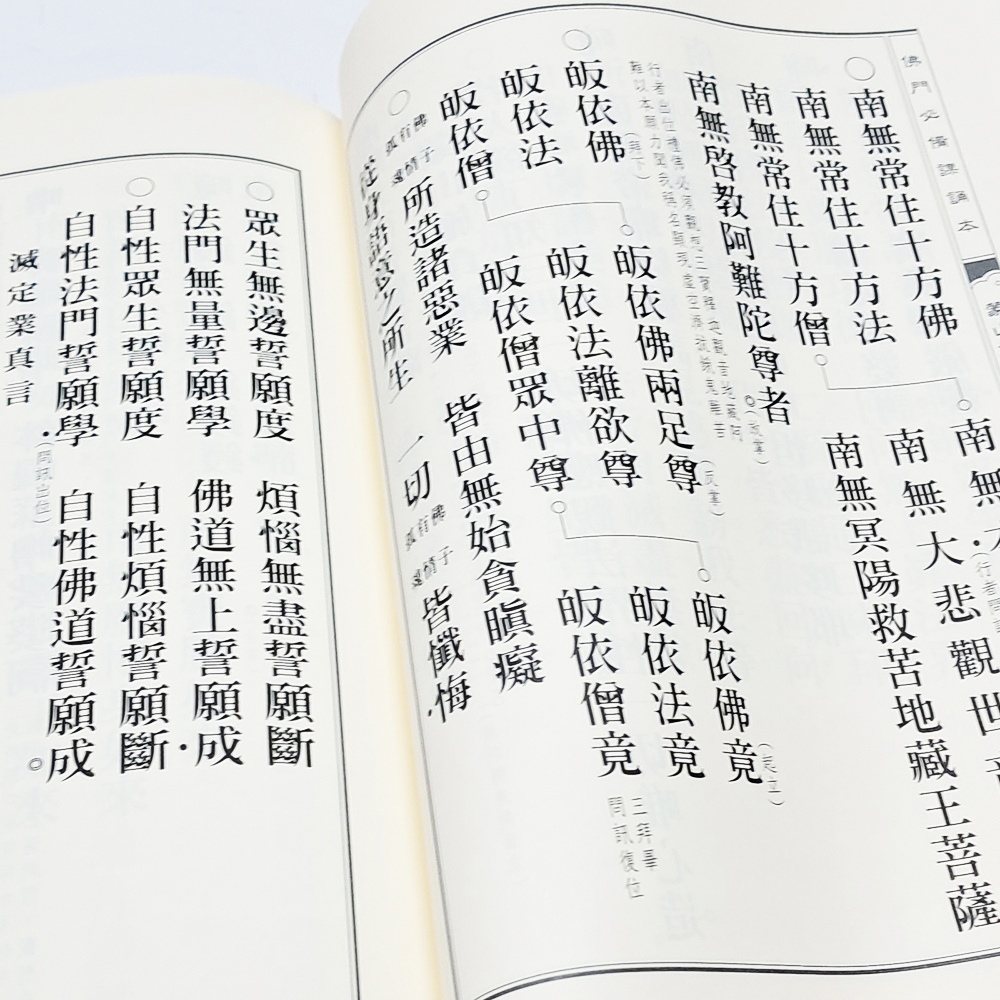 佛門必備課誦本
○南無常住十方佛
南無常住十方法
南無常住十方僧
南無
南無大悲觀世
南無冥陽救苦地藏王菩薩
南無啓教阿難陀尊者
(放掌)
(拜下)
○皈依佛
皈依法
皈依僧
皈依佛兩足尊
皈依法離欲尊
皈依僧眾中尊
皈依佛竟
皈依法竟
皈依僧竟
(起立)
三拜畢
問訊復位
○佛子
有情
孤魂
所造諸惡業 皆由無始貪瞋癡
之所生 一切
佛子
有情
孤魂
皆懺悔
○眾生無邊誓願度 煩惱無盡誓願斷
法門無量誓願學 佛道無上誓願成
○自性眾生誓願度 自性煩惱誓願斷
自性法門誓願學 自性佛道誓願成
(問訊出位)
滅定業真言